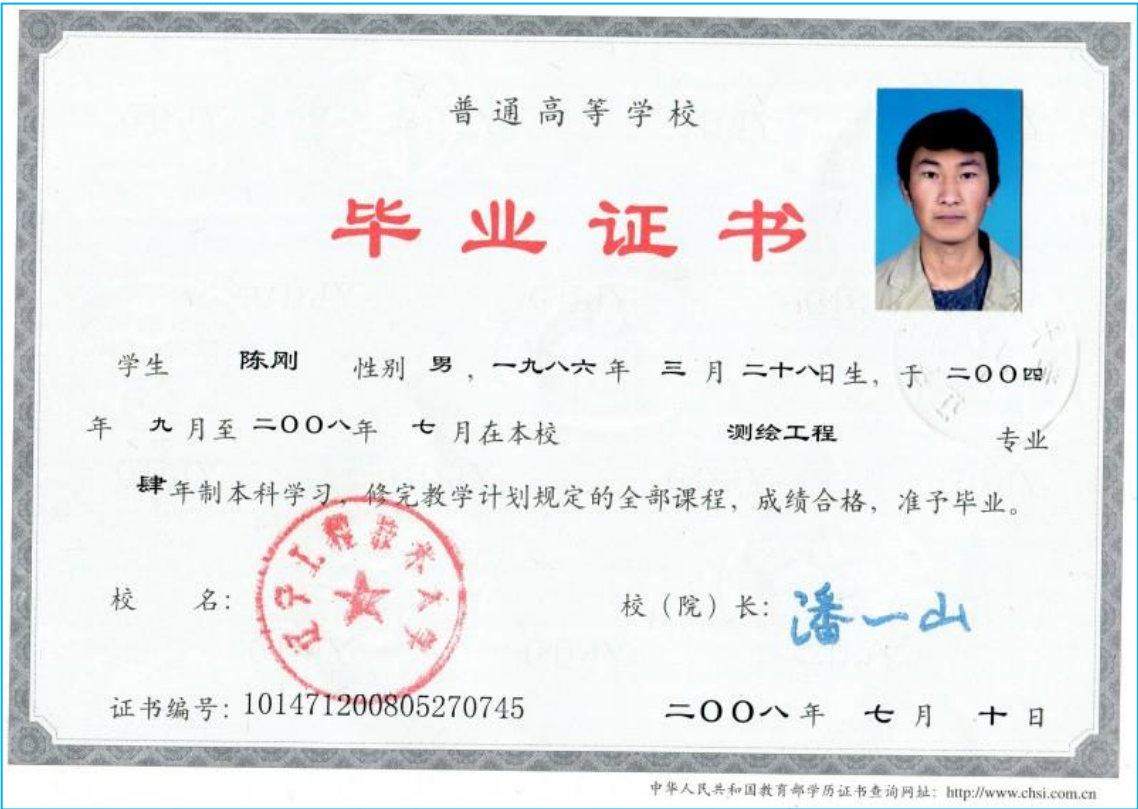 普通高等学校
毕业证书
学生 陈刚 性别 男，一九八六年 三 月 二十八日生，于 二〇〇四
年 九 月至 二〇〇八年 七 月在本校 测绘工程 专业
肆年制本科学习，修完教学计划规定的全部课程，成绩合格，准予毕业。
辽宁工程技术大学
校 名： 校（院）长：潘一山
证书编号：101471200805270745 二〇〇八年 七 月 十 日
中华人民共和国教育部学历证书查询网址：http://www.chsi.com.cn